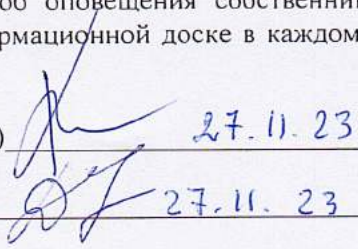 об оповещения собственни
рмационной доске в каждом
) 27.11.23
27.11.23